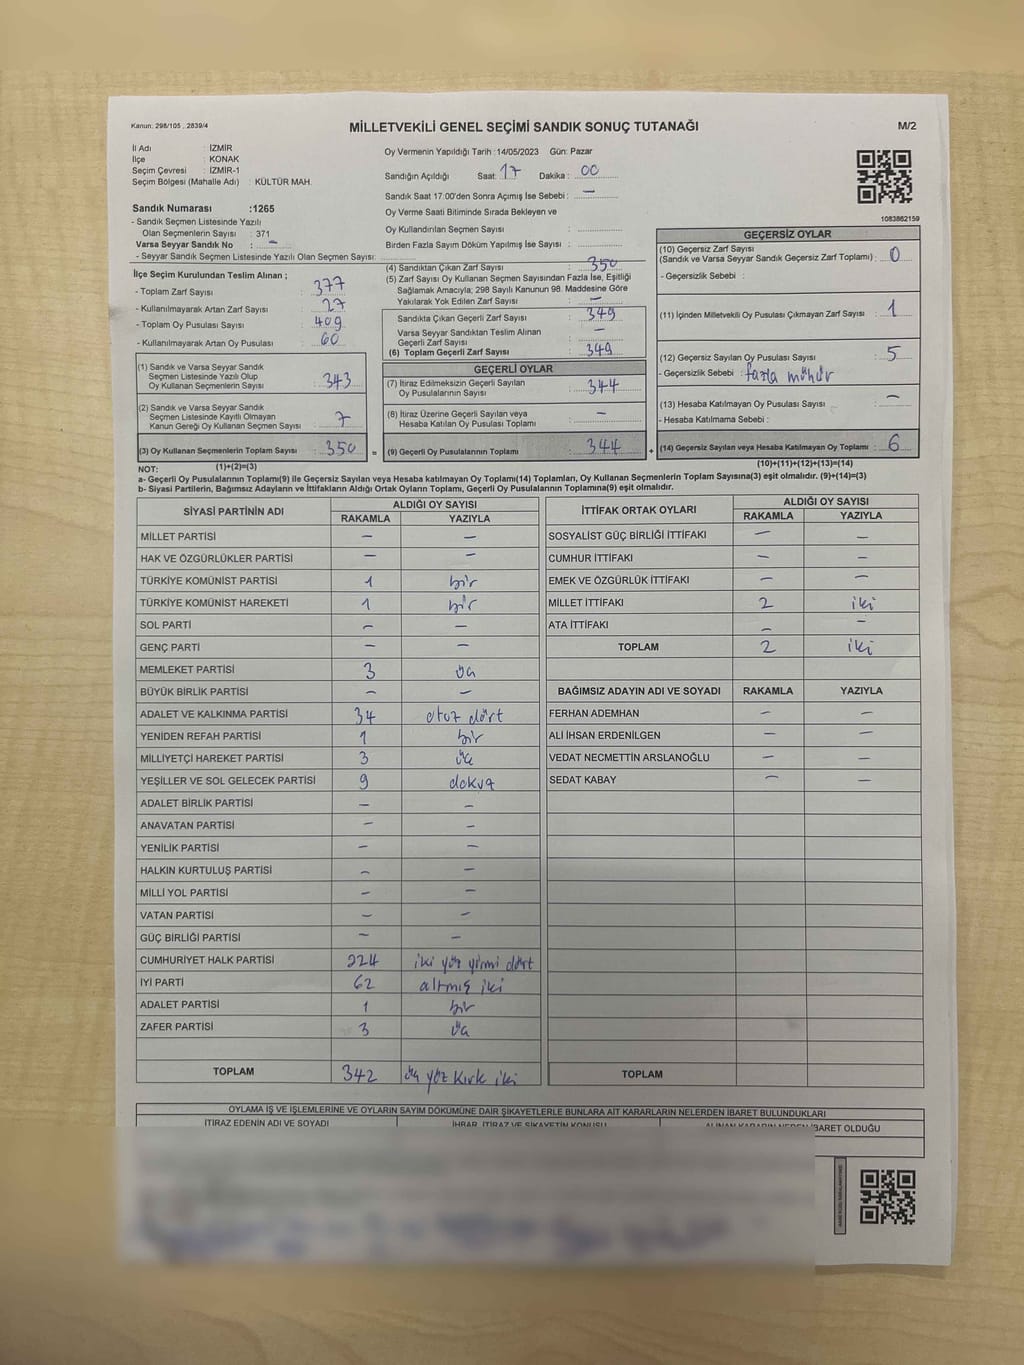 Kanun: 298/105 , 2839/4
MİLLETVEKİLİ GENEL SEÇİMİ SANDIK SONUÇ TUTANAĞI
M/2
İl Adı : İZMİR
İlçe : KONAK
Seçim Çevresi : İZMİR-1
Seçim Bölgesi (Mahalle Adı) : KÜLTÜR MAH.
Sandık Numarası :1265
- Sandık Seçmen Listesinde Yazılı
Olan Seçmenlerin Sayısı : 371
Varsa Seyyar Sandık No : –
- Seyyar Sandık Seçmen Listesinde Yazılı Olan Seçmen Sayısı:
Oy Vermenin Yapıldığı Tarih :14/05/2023 Gün: Pazar
Sandığın Açıldığı Saat: 17 Dakika : 00
Sandık Saat 17:00'den Sonra Açımış İse Sebebi : –
Oy Verme Saati Bitiminde Sırada Bekleyen ve
Oy Kullandırılan Seçmen Sayısı :
Birden Fazla Sayım Döküm Yapılmış İse Sayısı :
1083862159
İlçe Seçim Kurulundan Teslim Alınan ;
- Toplam Zarf Sayısı : 377
- Kullanılmayarak Artan Zarf Sayısı : 27
- Toplam Oy Pusulası Sayısı : 409
- Kullanılmayarak Artan Oy Pusulası : 60
(1) Sandık ve Varsa Seyyar Sandık
Seçmen Listesinde Yazılı Olup
Oy Kullanan Seçmenlerin Sayısı : 343
(2) Sandık ve Varsa Seyyar Sandık
Seçmen Listesinde Kayıtlı Olmayan
Kanun Gereği Oy Kullanan Seçmen Sayısı : 7
(3) Oy Kullanan Seçmenlerin Toplam Sayısı : 350 =
(4) Sandıktan Çıkan Zarf Sayısı : 350
(5) Zarf Sayısı Oy Kullanan Seçmen Sayısından Fazla İse, Eşitliği
Sağlamak Amacıyla; 298 Sayılı Kanunun 98. Maddesine Göre
Yakılarak Yok Edilen Zarf Sayısı : –
Sandıkta Çıkan Geçerli Zarf Sayısı : 349
Varsa Seyyar Sandıktan Teslim Alınan
Geçerli Zarf Sayısı : –
(6) Toplam Geçerli Zarf Sayısı : 349
GEÇERLİ OYLAR
(7) İtiraz Edilmeksizin Geçerli Sayılan
Oy Pusulalarının Sayısı : 344
(8) İtiraz Üzerine Geçerli Sayılan veya
Hesaba Katılan Oy Pusulası Toplamı : –
(9) Geçerli Oy Pusulalarının Toplamı : 344 +
GEÇERSİZ OYLAR
(10) Geçersiz Zarf Sayısı
(Sandık ve Varsa Seyyar Sandık Geçersiz Zarf Toplamı) : 0
- Geçersizlik Sebebi :
(11) İçinden Milletvekili Oy Pusulası Çıkmayan Zarf Sayısı : 1
(12) Geçersiz Sayılan Oy Pusulası Sayısı : 5
- Geçersizlik Sebebi : fazla mühür
(13) Hesaba Katılmayan Oy Pusulası Sayısı : –
- Hesaba Katılmama Sebebi :
(14) Geçersiz Sayılan veya Hesaba Katılmayan Oy Toplamı : 6
NOT: (1)+(2)=(3) (10)+(11)+(12)+(13)=(14)
a- Geçerli Oy Pusulalarının Toplamı(9) ile Geçersiz Sayılan veya Hesaba katılmayan Oy Toplamı(14) Toplamları, Oy Kullanan Seçmenlerin Toplam Sayısına(3) eşit olmalıdır. (9)+(14)=(3)
b- Siyasi Partilerin, Bağımsız Adayların ve İttifakların Aldığı Ortak Oyların Toplamı, Geçerli Oy Pusulalarının Toplamına(9) eşit olmalıdır.
SİYASİ PARTİNİN ADI ALDIĞI OY SAYISI
RAKAMLA YAZIYLA
MİLLET PARTİSİ – –
HAK VE ÖZGÜRLÜKLER PARTİSİ – –
TÜRKİYE KOMÜNİST PARTİSİ 1 bir
TÜRKİYE KOMÜNİST HAREKETİ 1 bir
SOL PARTİ – –
GENÇ PARTİ – –
MEMLEKET PARTİSİ 3 üç
BÜYÜK BİRLİK PARTİSİ – –
ADALET VE KALKINMA PARTİSİ 34 otuz dört
YENİDEN REFAH PARTİSİ 1 bir
MİLLİYETÇİ HAREKET PARTİSİ 3 üç
YEŞİLLER VE SOL GELECEK PARTİSİ 9 dokuz
ADALET BİRLİK PARTİSİ – –
ANAVATAN PARTİSİ – –
YENİLİK PARTİSİ – –
HALKIN KURTULUŞ PARTİSİ – –
MİLLİ YOL PARTİSİ – –
VATAN PARTİSİ – –
GÜÇ BİRLİĞİ PARTİSİ – –
CUMHURİYET HALK PARTİSİ 224 iki yüz yirmi dört
İYİ PARTİ 62 altmış iki
ADALET PARTİSİ 1 bir
ZAFER PARTİSİ 3 üç
TOPLAM 342 üç yüz kırk iki
İTTİFAK ORTAK OYLARI ALDIĞI OY SAYISI
RAKAMLA YAZIYLA
SOSYALİST GÜÇ BİRLİĞİ İTTİFAKI – –
CUMHUR İTTİFAKI – –
EMEK VE ÖZGÜRLÜK İTTİFAKI – –
MİLLET İTTİFAKI 2 iki
ATA İTTİFAKI – –
TOPLAM 2 iki
BAĞIMSIZ ADAYIN ADI VE SOYADI RAKAMLA YAZIYLA
FERHAN ADEMHAN – –
ALİ İHSAN ERDENİLGEN – –
VEDAT NECMETTİN ARSLANOĞLU – –
SEDAT KABAY – –
TOPLAM
OYLAMA İŞ VE İŞLEMLERİNE VE OYLARIN SAYIM DÖKÜMÜNE DAİR ŞİKAYETLERLE BUNLARA AİT KARARLARIN NELERDEN İBARET BULUNDUKLARI
İTİRAZ EDENİN ADI VE SOYADI İHBAR, İTİRAZ VE ŞİKAYETİN KONUSU ALINAN KARARIN NEDEN İBARET OLDUĞU